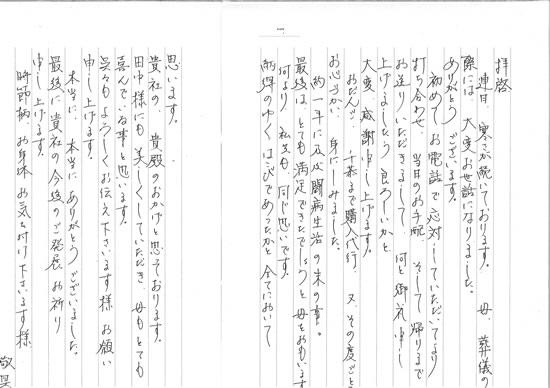 拝啓
連日 寒さが続いております。 母 葬儀の
際には、大変お世話になりました。
ありがとうございます。
初めてお電話で応対していただいてより
打ち合わせ、当日のお手配 そして帰りまで
お送りいただきまして、何と御礼申し
上げましたら良ろしいかと
大変 感謝申し上げます。
まで購入代行、又、その度ごと
お心づかい 身にしみました。
約一年に及ぶ闘病生活の末の事。
最後は、とても満足できたでしょうと母をおもいます
何より 私共も、同じ思いです。
納得のゆくはびであったかと全てにおいて
思います。
貴社の、貴殿のおかげと思っております。
田中様にも 美しくしていただき、母もとても
喜んでいる事と思います。
呉々もよろしくお伝え下さいます様 お願い
申し上げます。
本当に、本当にありがとうございました。
最後に貴社の今後のご発展 お祈り
申し上げます。
時節柄、お身体 お気を付け下さいます様、
敬具